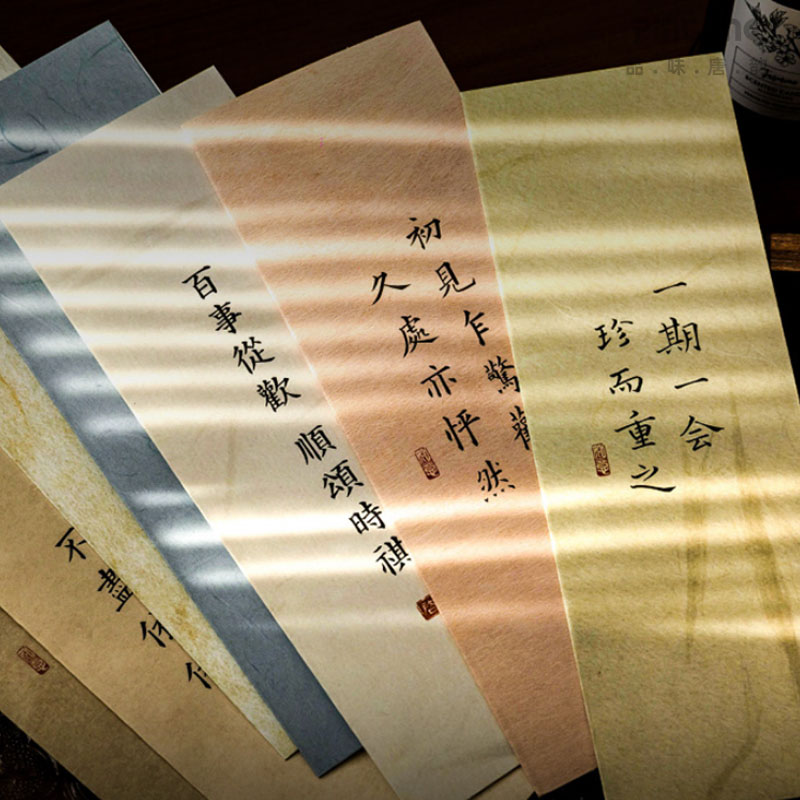 一期一会
珍而重之
初見乍驚歡
久處亦怦然
百事從歡 順頌時祺
不盡
品.味.唐.